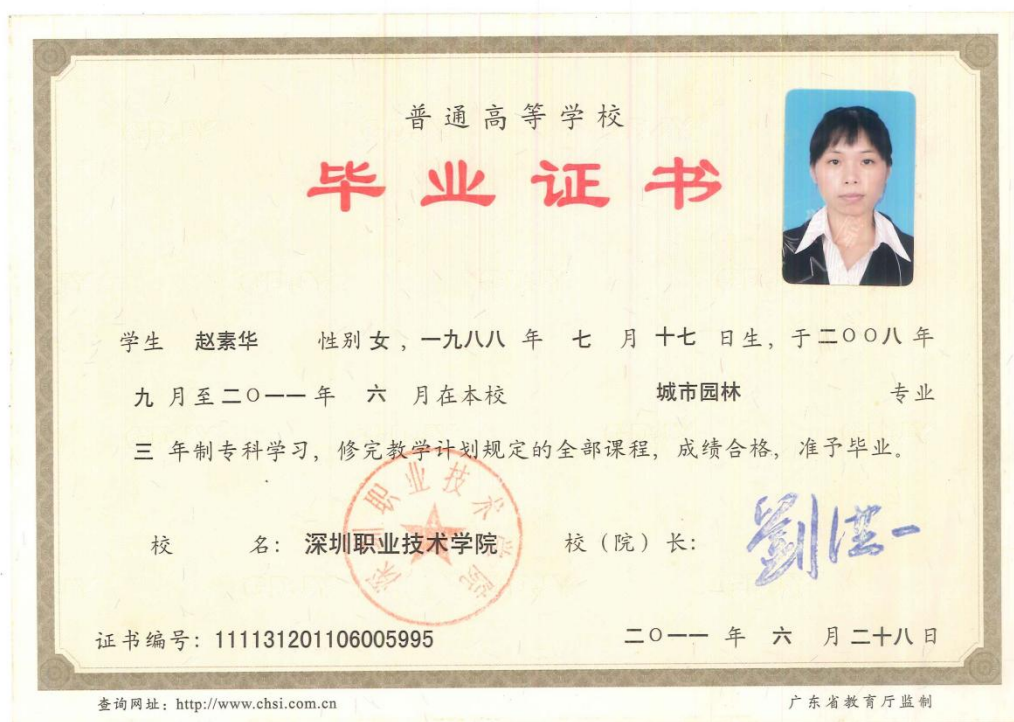 普通高等学校
毕业证书
学生 赵素华 性别女，一九八八 年 七 月 十七 日生，于二〇〇八年
九 月至二〇一一年 六 月在本校 城市园林 专业
三 年制专科学习，修完教学计划规定的全部课程，成绩合格，准予毕业。
校 名：深圳职业技术学院 校（院）长：
深圳职业技术学院
证书编号：111131201106005995 二〇一一 年 六 月 二十八 日
查询网址：http://www.chsi.com.cn 广东省教育厅监制